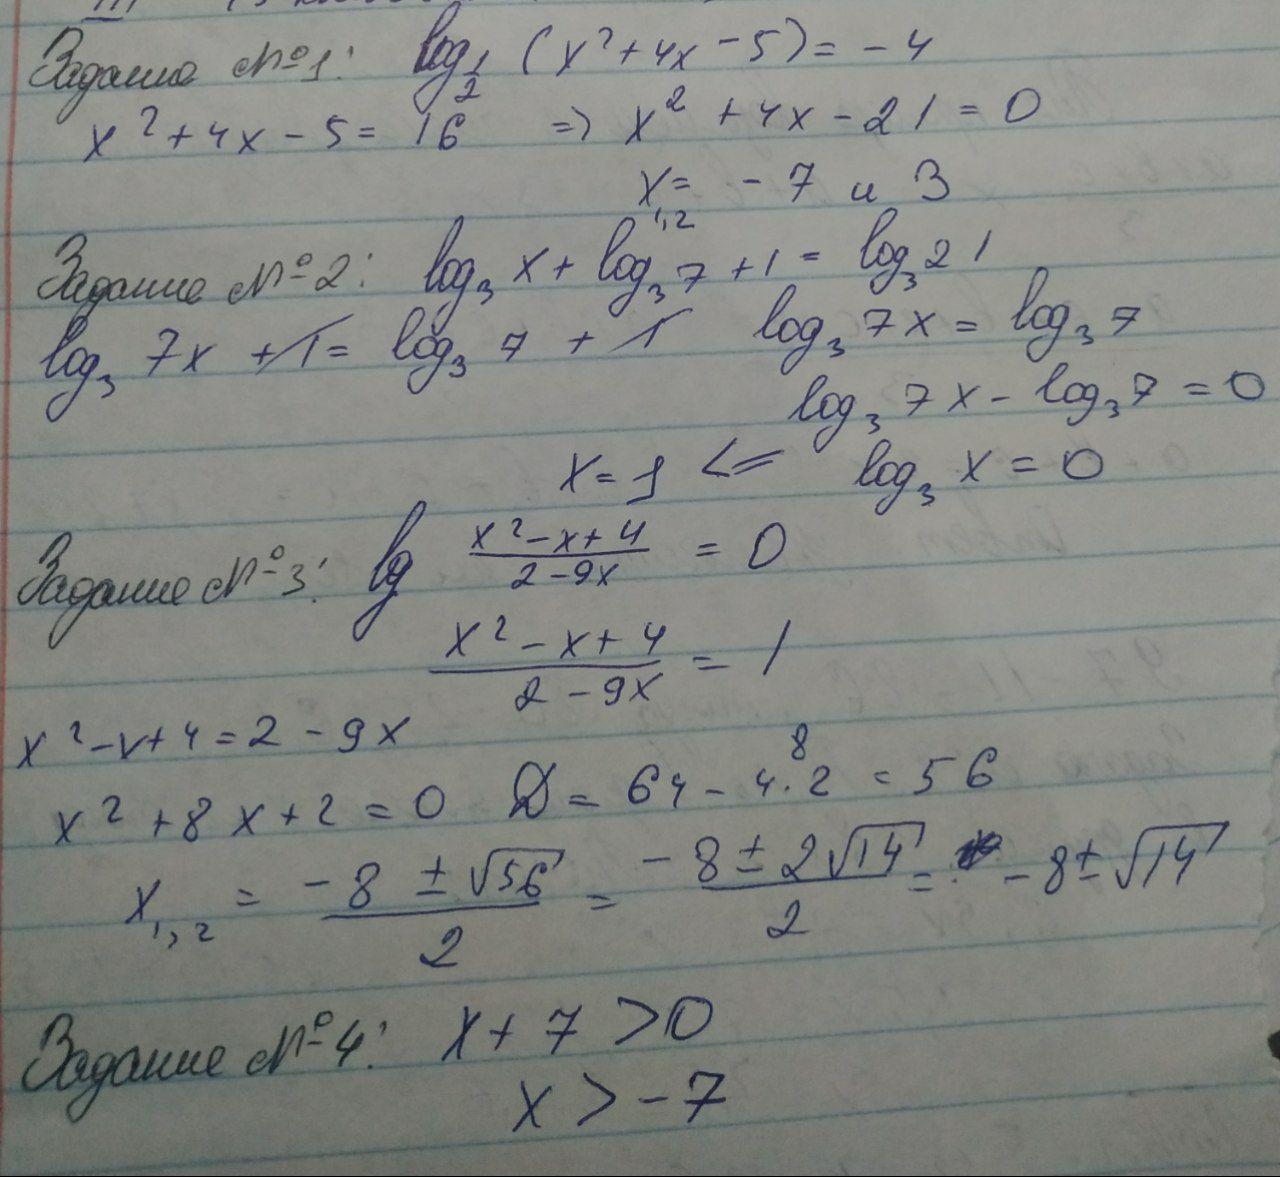 Задание №1: log₁/₂ (x² + 4x - 5) = - 4
x² + 4x - 5 = 16 => x² + 4x - 21 = 0
x₁,₂ = - 7 и 3
Задание №2: log₃ x + log₃ 7 + 1 = log₃ 21
log₃ 7x + 1 = log₃ 7 + 1 log₃ 7x = log₃ 7
log₃ 7x - log₃ 7 = 0
x = 1 <= log₃ x = 0
Задание №3: lg (x² - x + 4)/(2 - 9x) = 0
(x² - x + 4)/(2 - 9x) = 1
x² - x + 4 = 2 - 9x
x² + 8x + 2 = 0 D = 64 - 4·2 = 56
8
x₁,₂ = (-8 ± √56)/2 = (-8 ± 2√14)/2 = -8 ± √14
Задание №4: x + 7 > 0
x > - 7